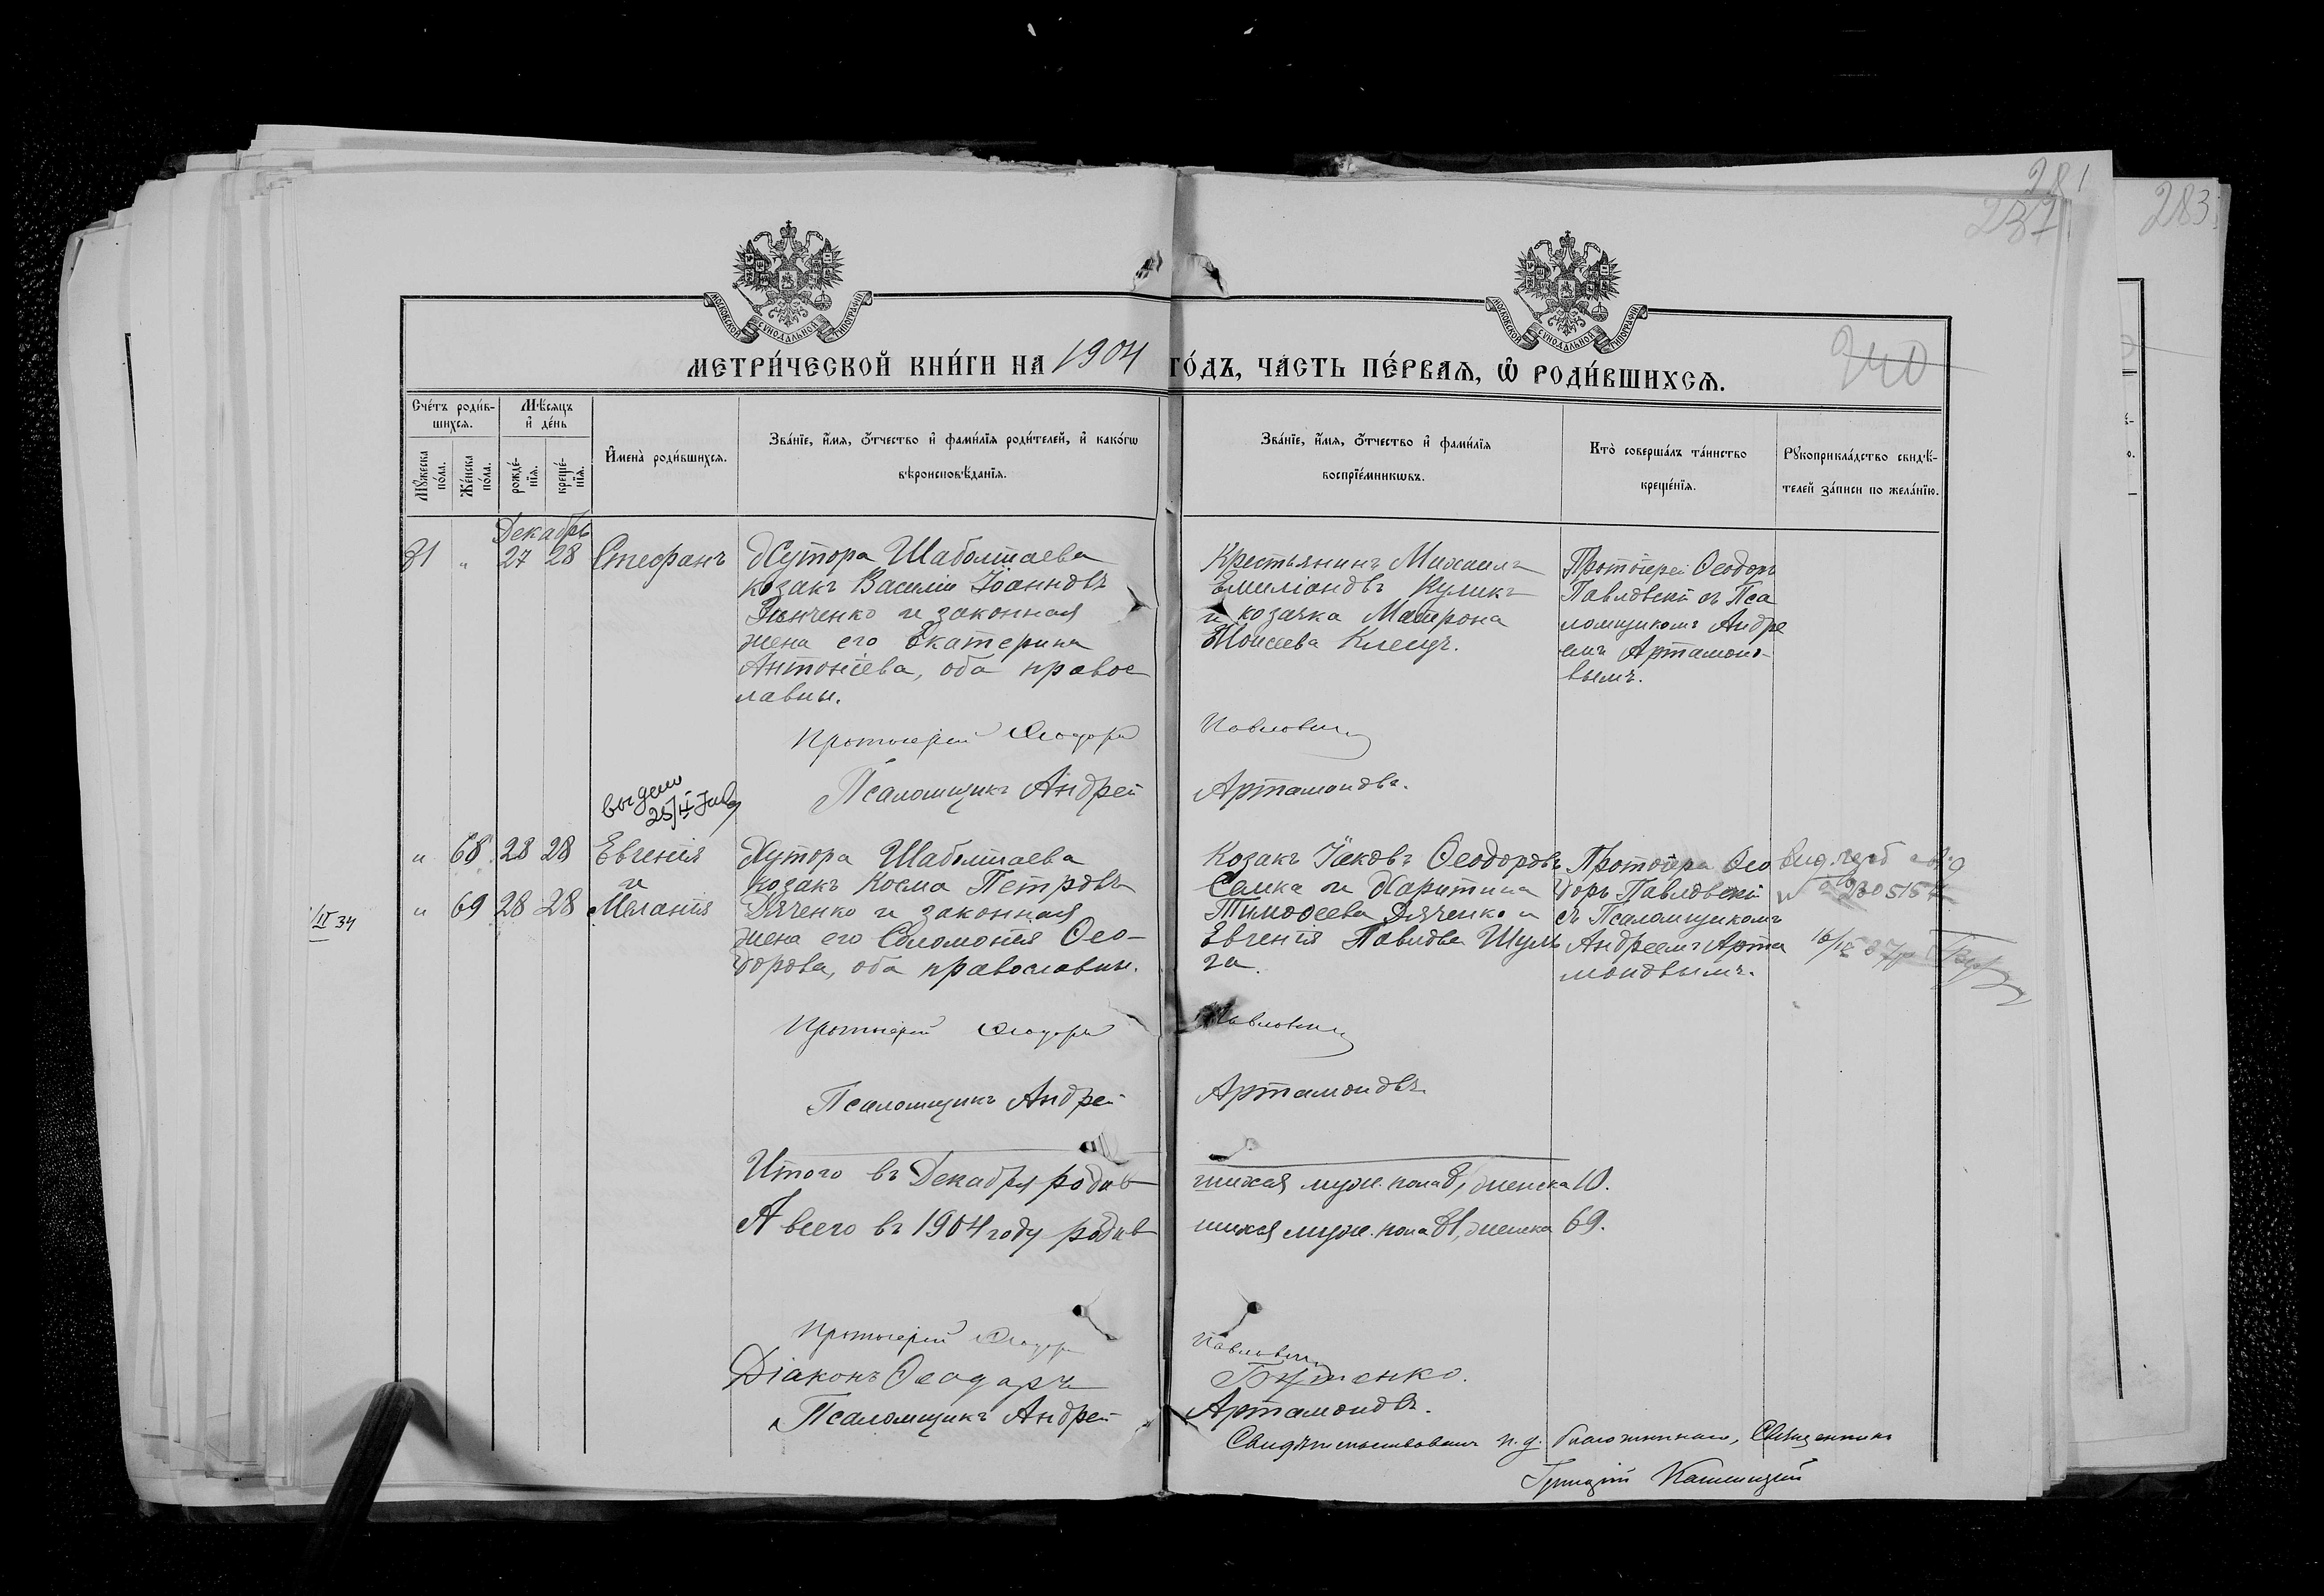 281
237
283
240
МОСКОВСКОЙ СѴНОДАЛЬНОЙ ТИПОГРАФІИ
МОСКОВСКОЙ СѴНОДАЛЬНОЙ ТИПОГРАФІИ
МЕТРИ́ЧЕСКОЙ КНИ́ГИ НА 1904 ГО́ДЪ, ЧА́СТЬ ПЕ́РВАѦ, Ѡ҆ РОДИ́ВШИХСѦ.
Сче́тъ роди́в-
шихсѧ.
Мѣ́сѧцъ
и҆ де́нь
Мꙋ́жеска по́ла.
Же́нска по́ла.
рожде́-
нїѧ.
креще́-
нїѧ.
И҆мена̀ роди́вшихсѧ.
Зва́нїе, и҆́мѧ, ѻ҆́тчество и҆ фами́лїѧ роди́телей, и҆ како́гѡ
вѣроисповѣ́данїѧ.
Зва́нїе, и҆́мѧ, ѻ҆́тчество и҆ фами́лїѧ
воспрїе́мникѡвъ.
Кто̀ соверша́лъ та́инство
креще́нїѧ.
Рꙋкоприкла́дство свидѣ́-
телей за́писи по жела́нїю.
Декабрь
81 " 27 28 Стефанъ
Хутора Шаболтаева
козакъ Василій Іоанновъ
Зѣнченко и законная
жена его Екатерина
Антоніева, оба правос
лавны.
Крестьянинъ Михаилъ
Емиліановъ Куликъ
и козачка Матрона
Моисеева Клець.
Протоіерей Ѳеодоръ
Павловскій съ Пса
ломщикомъ Андре
емъ Артамоно-
вымъ.
Протоіерей Ѳеодоръ Павловскій
Псаломщикъ Андрей Артамоновъ.
выдено
25/II
" 68 28 28 Евгенія
и
" 69 28 28 Меланія
/IV 34
Хутора Шаболтаева
козакъ Косма Петровъ
Дяченко и законная
жена его Соломонія Ѳео-
дорова, оба православны.
Козакъ Іаковъ Ѳеодоровъ
Семка и Харитина
Тимоѳеева Дяченко и
Евгенія Павлова Шуль
га.
Протоіерей Ѳео
доръ Павловскій
съ Псаломщикомъ
Андреемъ Арта
моновымъ.
16/IX 37р
Протоіерей Ѳеодоръ Павловскій
Псаломщикъ Андрей Артамоновъ
Итого въ Декабрѣ родив шихся муж. пола 8, женска 10.
А всего въ 1904 году родив шихся муж. пола 81, женска 69.
Протоіерей Ѳеодоръ Павловскій
Діаконъ Ѳеодоръ Бутенко.
Псаломщикъ Андрей Артамоновъ.
Свидѣтельствовалъ и. д. благочиннаго, Священникъ